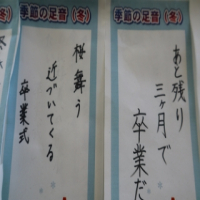 季節の足音(冬)
あと残り
三ヶ月で
卒業だ
季節の足音(冬)
桜舞う
近づいてくる
卒業式
(冬)